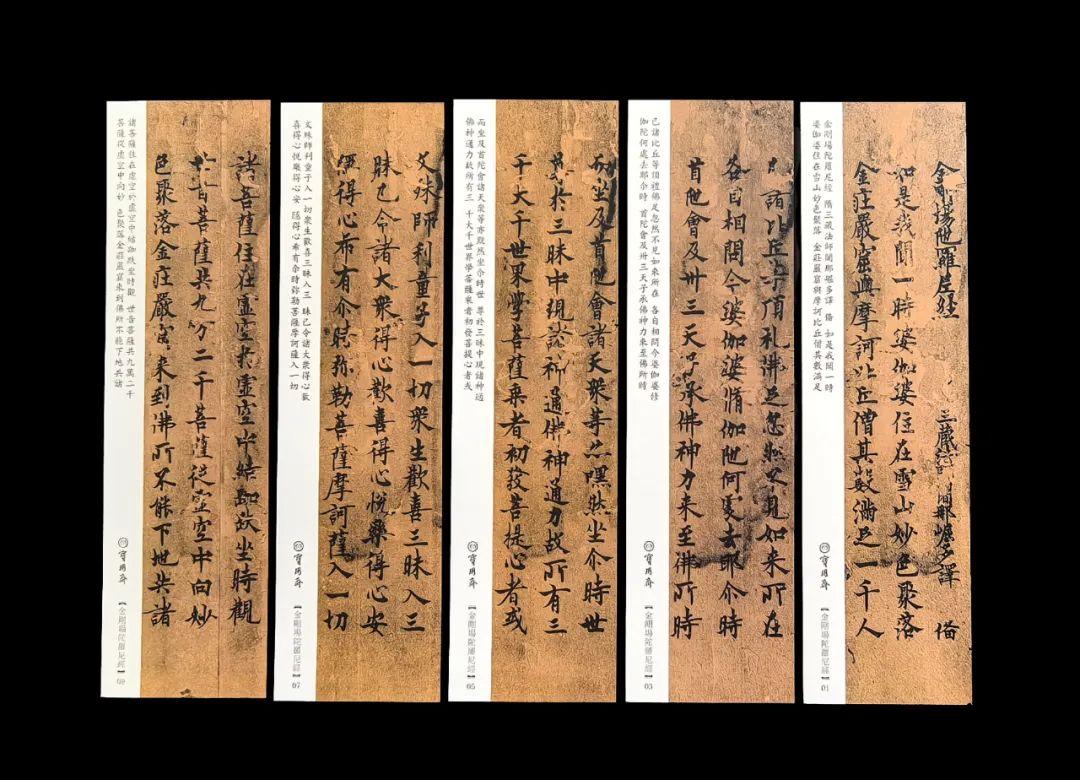 金剛場陀羅尼經 三藏 闍那崛多譯
如是我聞一時婆伽婆住在雪山妙色聚落
金莊嚴窟與摩訶比丘僧其數滿足一千人
金剛場陀羅尼經 隋三藏法師闍那崛多譯 如是我聞一時
婆伽婆住在雪山妙色聚落 金莊嚴窟與摩訶比丘僧其數滿足
【金剛場陀羅尼經】01
諸比丘等頂礼佛足忽然不見如來所在
各自相問今婆伽婆脩伽陀何處去耶尒時
首陀會及卅三天子承佛神力来至佛所時
已諸比丘等頂禮佛足忽然不見如來所在 各自相問今婆伽婆修
伽陀何處去耶尒時 首陀會及卅三天子承佛神力來至佛所時
【金剛場陀羅尼經】03
而坐及首陀會諸天衆等亦嘿然坐尒時世
尊於三昧中現諸神通佛神通力故所有三
千大千世界學菩薩乘者初發菩提心者或
而坐及首陀會諸天衆等亦默然坐尒時世 尊於三昧中現諸神通
佛神通力故所有三 千大千世界學菩薩乘者初發菩提心者或
【金剛場陀羅尼經】05
文殊師利童子入一切衆生歡喜三昧入三
昧已令諸大衆得心歡喜得心悅樂得心安
隱得心希有尒時弥勒菩薩摩訶薩入一切
文殊師利童子入一切衆生歡喜三昧入三 昧已令諸大衆得心歡
喜得心悅樂得心安 隱得心希有尒時弥勒菩薩摩訶薩入一切
【金剛場陀羅尼經】07
諸菩薩住在虛空於虛空中結跏趺坐時觀
世音菩薩共九万二千菩薩從虛空中向妙
色聚落金莊嚴窟来到佛所不能下地共諸
諸菩薩住在虛空於虛空中結跏趺坐時觀 世音菩薩共九萬二千
菩薩從虛空中向妙 色聚落金莊嚴窟來到佛所不能下地共諸
【金剛場陀羅尼經】09